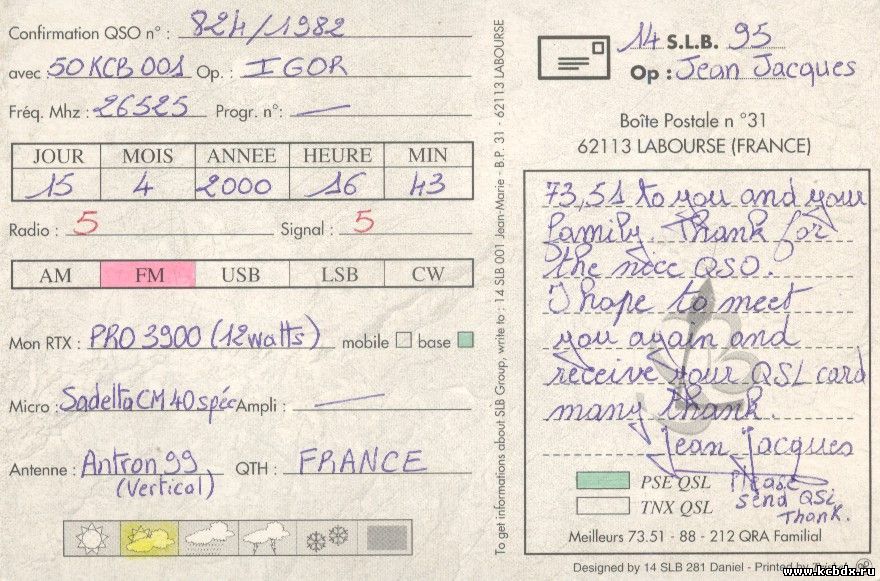 Confirmation QSO n° : 824/1982
avec 50 KCB 001 Op. : IGOR
Fréq. Mhz : 26525 Progr. n°: —
JOUR MOIS ANNEE HEURE MIN
15 4 2000 16 43
Radio : 5 Signal : 5
AM FM USB LSB CW
Mon RTX : PRO 3900 (12 watts) mobile base
Micro : Sadelta CM 40 spéc Ampli : —
Antenne : Antron 99 QTH : FRANCE
(Vertical)
To get informations about SLB Group, write to : 14 SLB 001 Jean-Marie - B.P. 31 - 62113 LABOURSE
14 S.L.B. 95
Op : Jean Jacques
Boîte Postale n °31
62113 LABOURSE (FRANCE)
73,51 to you and your
family. Thank for
the nice QSO.
I hope to meet
you again and
receive your QSL card
many thank.
Jean Jacques
PSE QSL
TNX QSL
Please
send QSL
Thank.
Meilleurs 73.51 - 88 - 212 QRA Familial
Designed by 14 SLB 281 Daniel - Printed by
www.kcbdx.ru